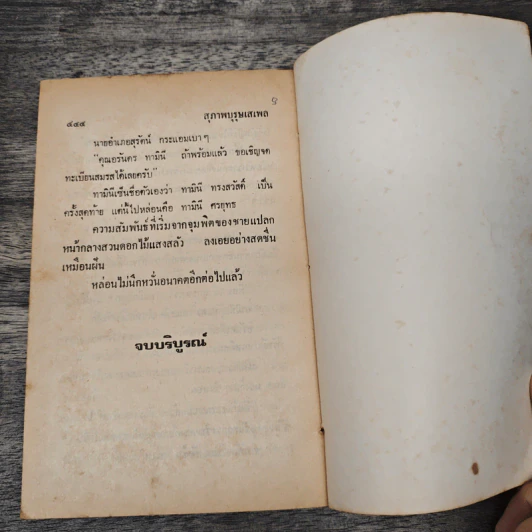 ๙๔๔ สุภาพบุรุษเสเพล
นายอำเภอสุรัตน์ กระแอมเบา ๆ
"คุณอรันคร ทามินี ถ้าพร้อมแล้ว ขอเชิญจด
ทะเบียนสมรสได้เลยครับ"
ทามินีเซ็นชื่อตัวเองว่า ทามินี ทรงสวัสดิ์ เป็น
ครั้งสุดท้าย แต่นี้ไปหล่อนคือ ทามินี ศรยุทธ
ความสัมพันธ์ที่เริ่มจากจุมพิตของชายแปลก
หน้ากลางสวนดอกไม้แสงสลัว ลงเอยอย่างสดชื่น
เหมือนฝัน
หล่อนไม่นึกหวั่นอนาคตอีกต่อไปแล้ว
จบบริบูรณ์